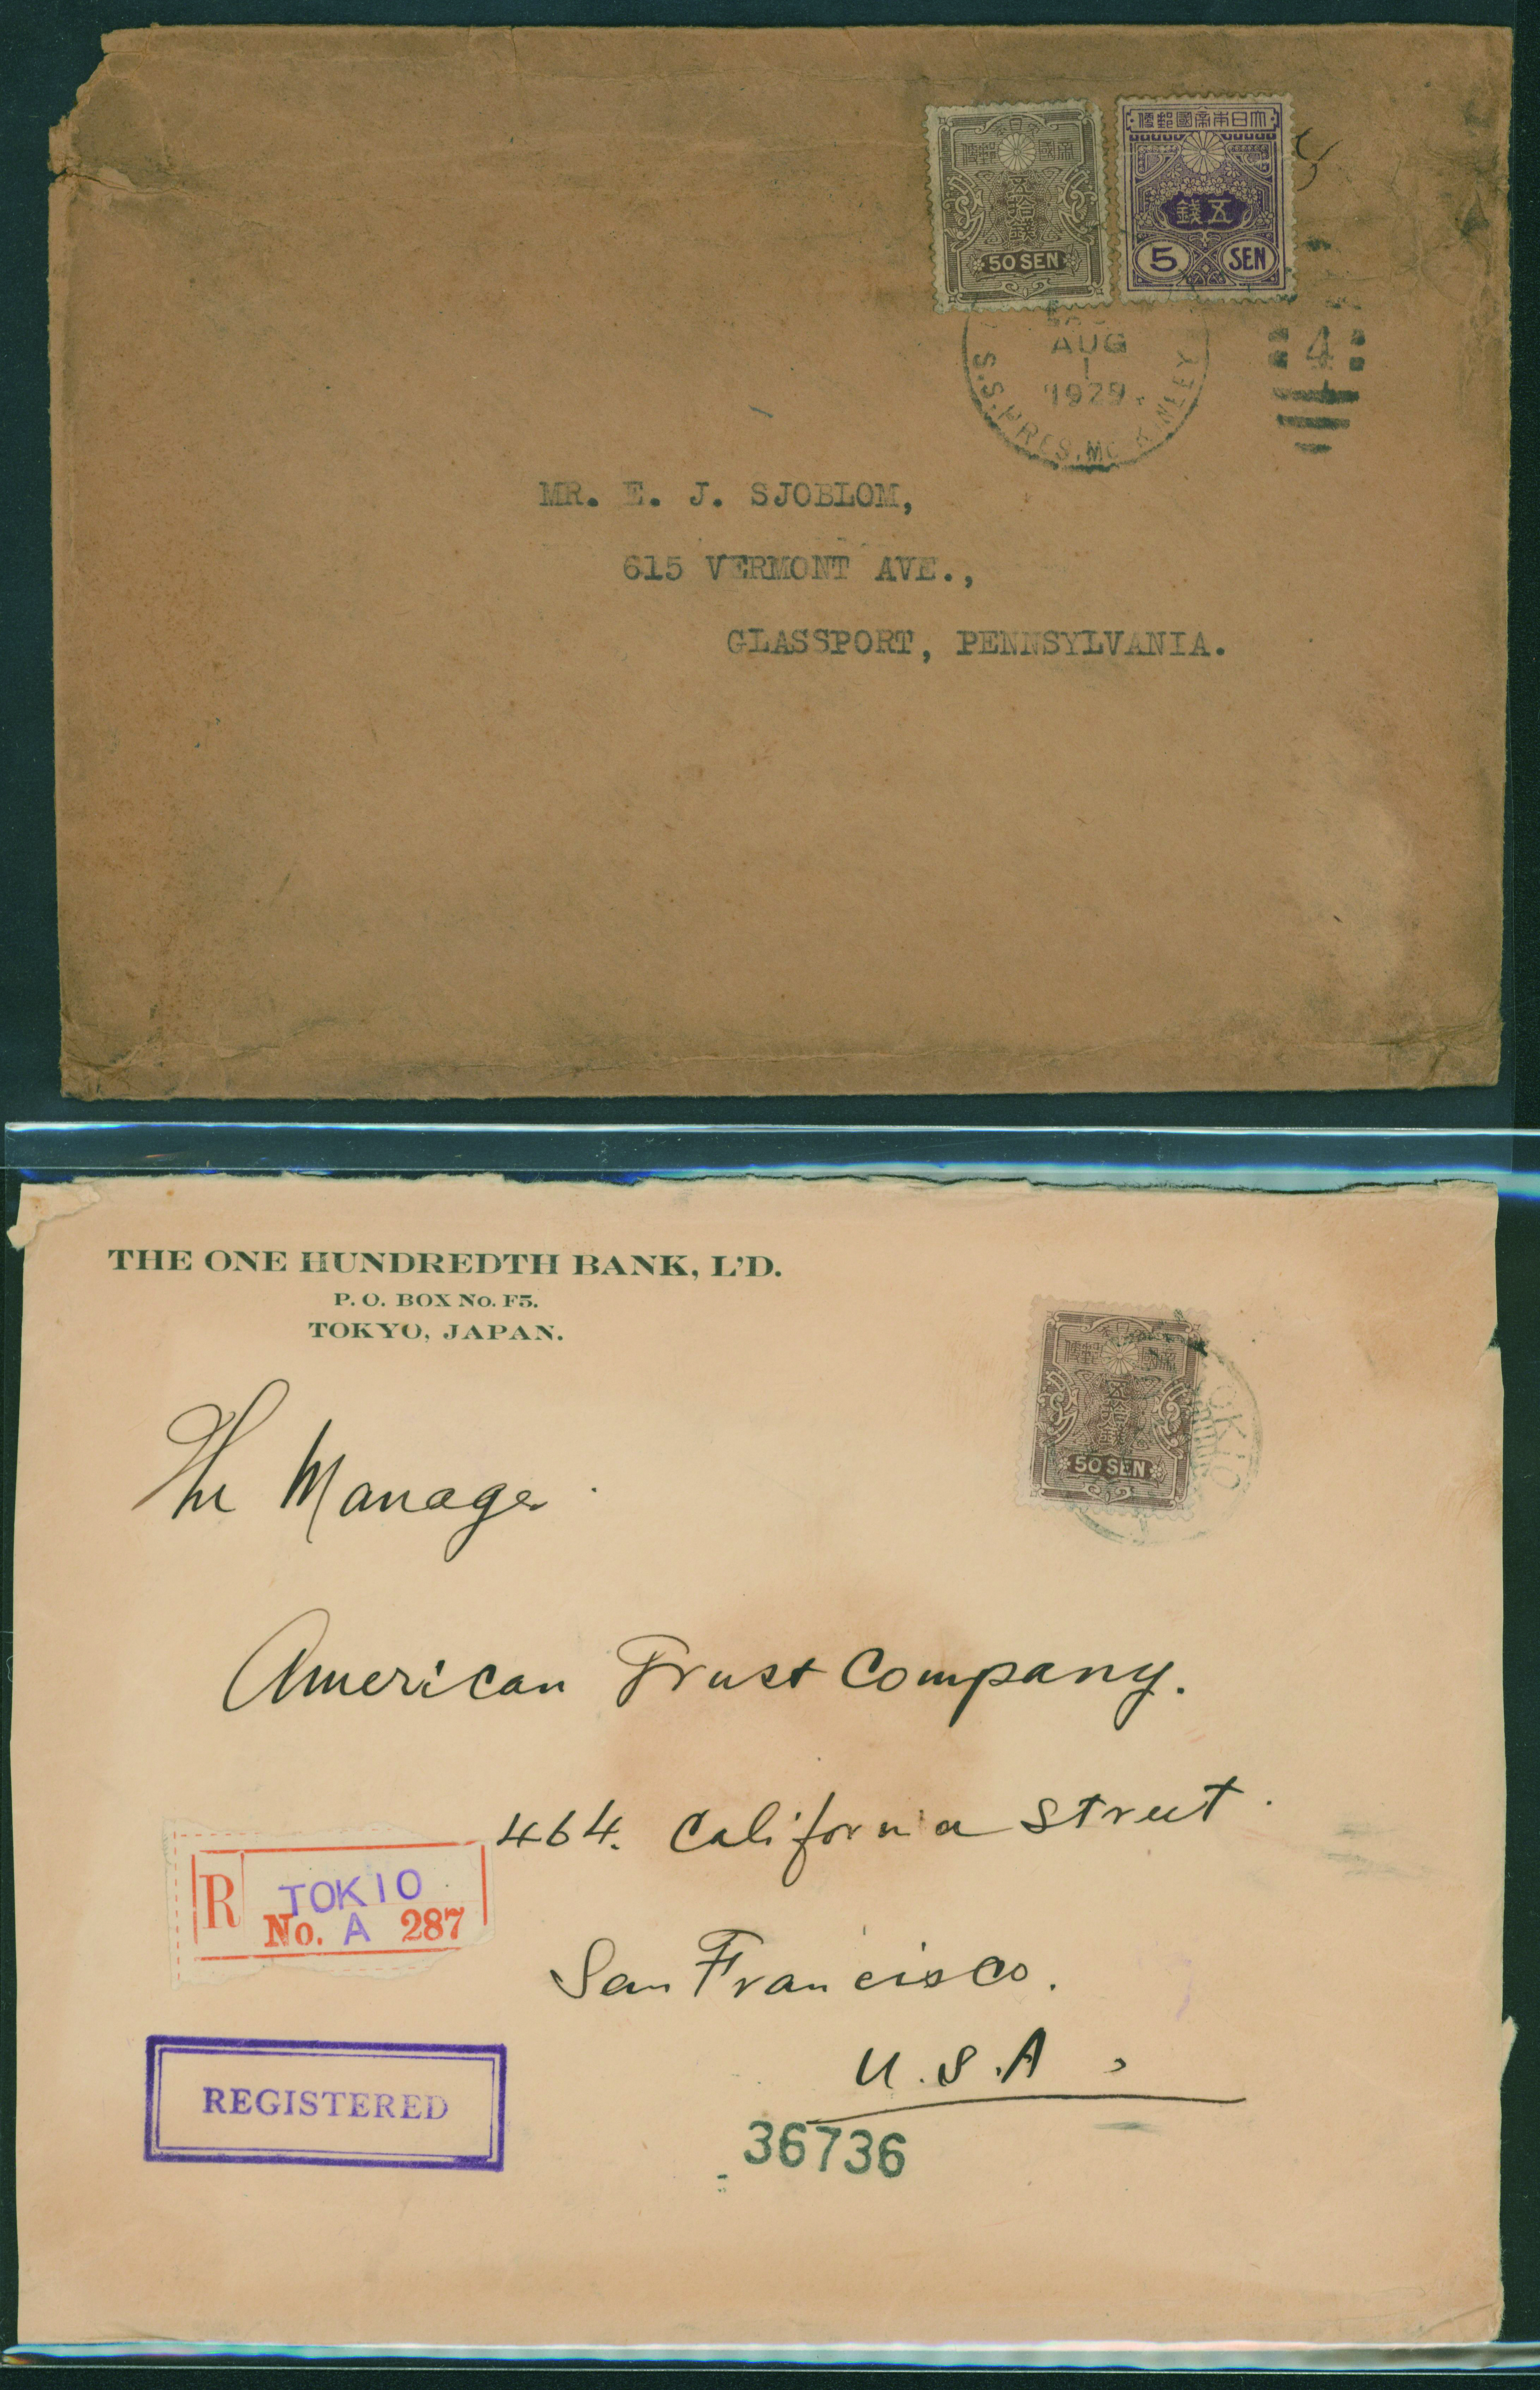 大日本帝國郵便
五拾錢
50 SEN
大日本帝國郵便
五錢
5 SEN
AUG
1
1929
S.S. PRES. MC KINLEY
4
MR. E. J. SJOBLOM,
615 VERMONT AVE.,
GLASSPORT, PENNSYLVANIA.
THE ONE HUNDREDTH BANK, L'D.
P. O. BOX No. F5.
TOKYO, JAPAN.
大日本帝國郵便
五拾錢
50 SEN
TOKIO
The Manager
American Trust Company.
464. California Street.
R TOKIO
No. A 287
San Francisco.
U.S.A.
REGISTERED
36736